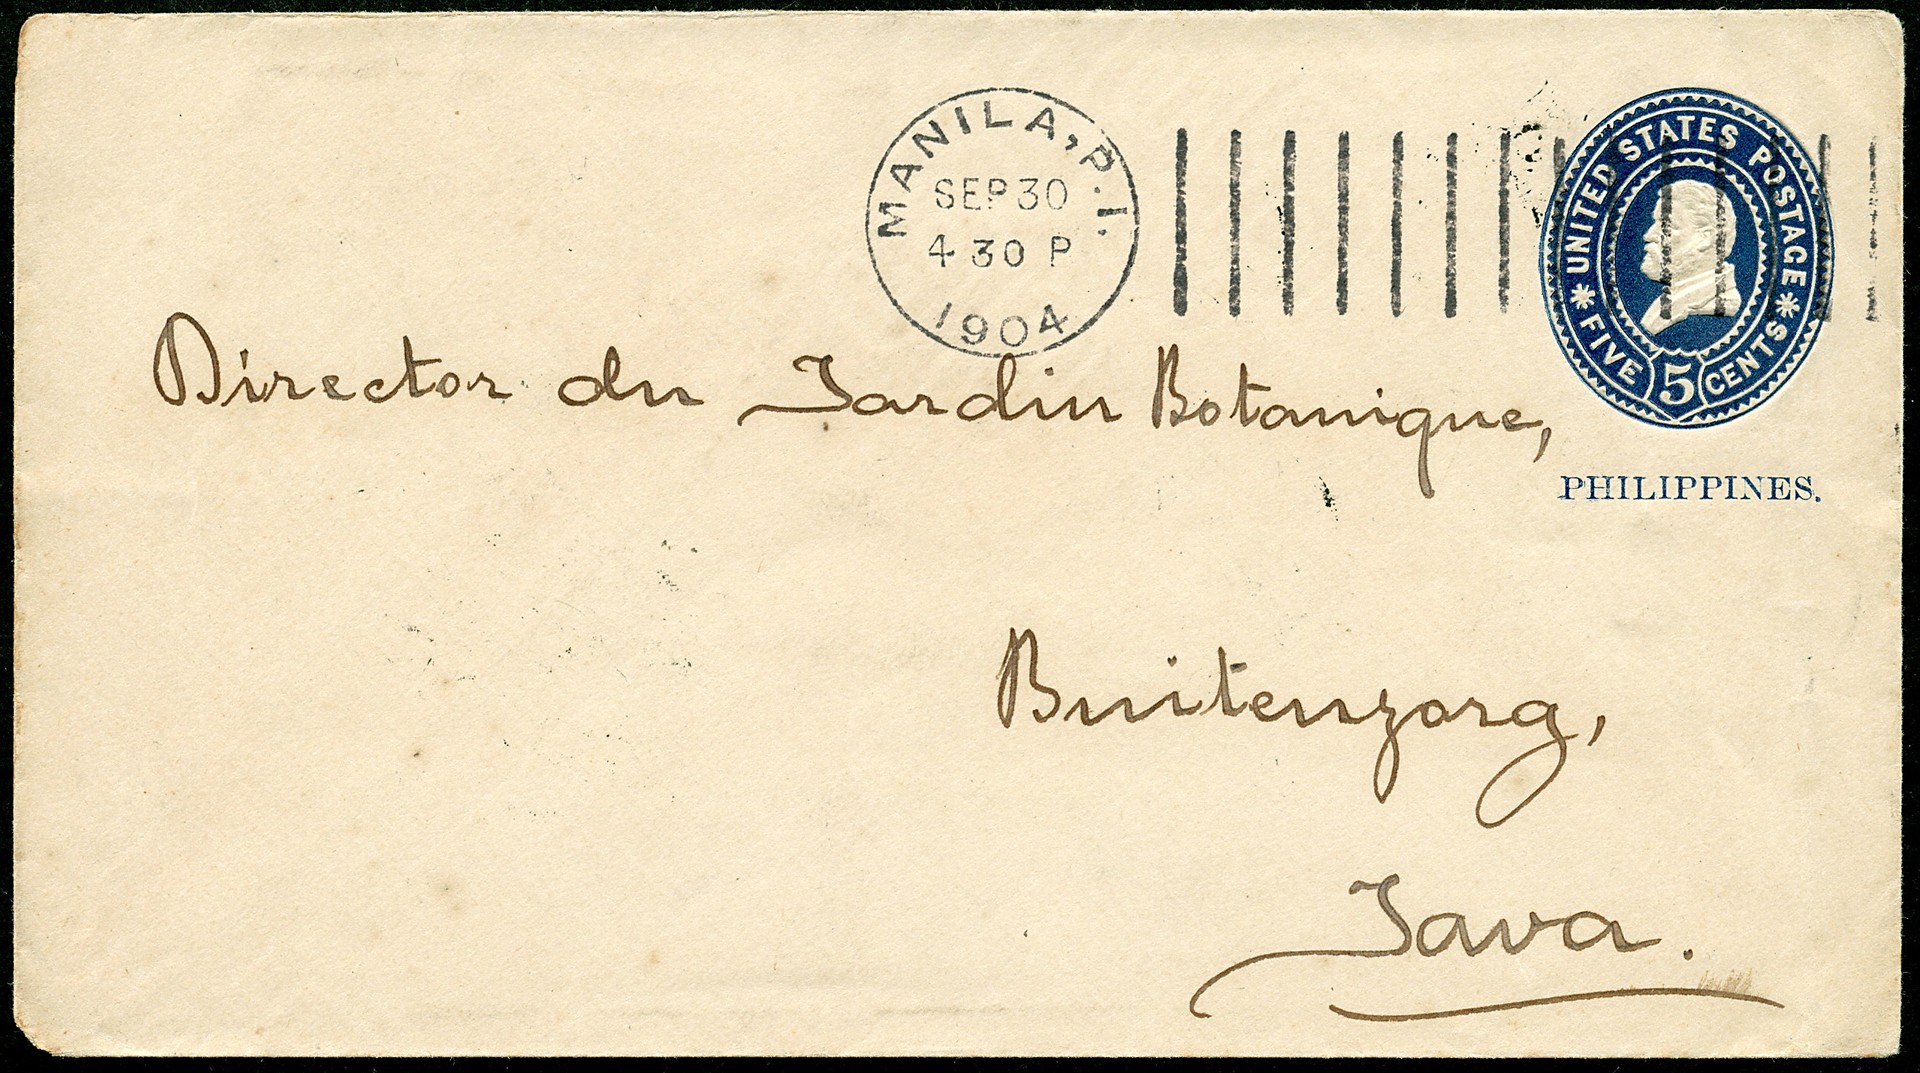 MANILA, P.I.
SEP 30
4 30 P
1904
UNITED STATES POSTAGE
* FIVE 5 CENTS *
PHILIPPINES.
Director du Jardin Botanique,
Buitenzorg,
Java.